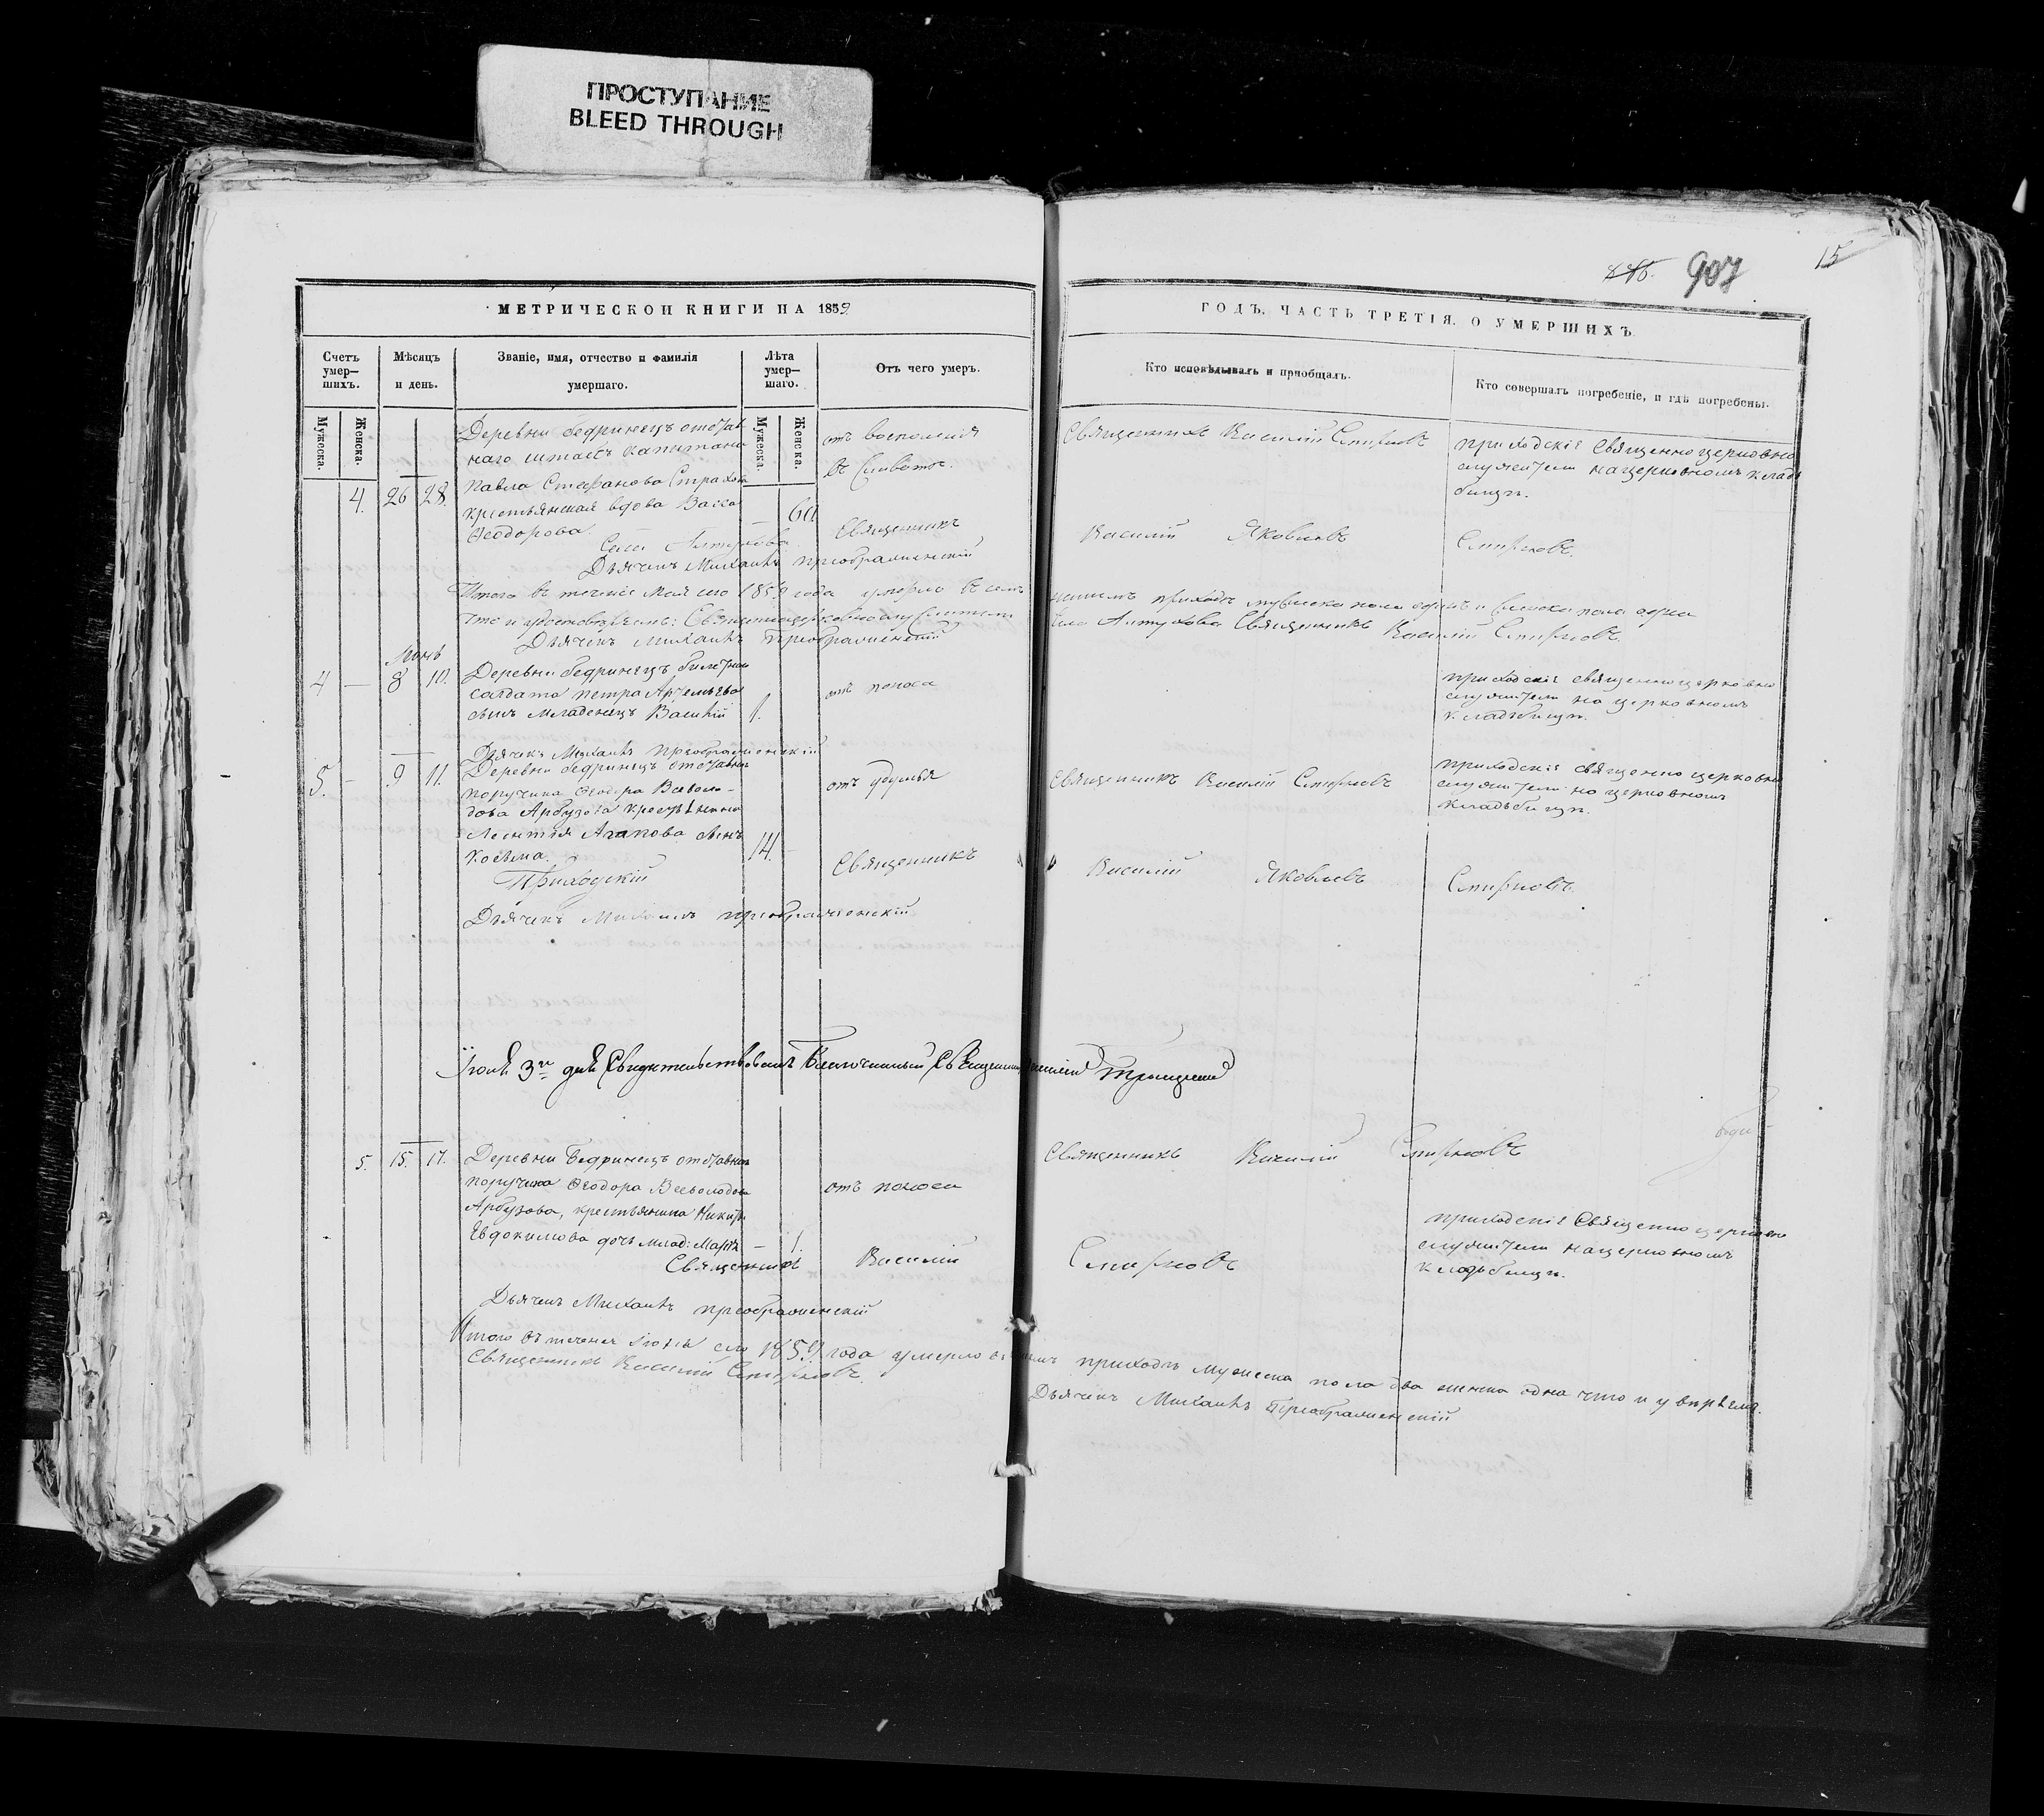 ПРОСТУПАНИЕ
BLEED THROUGH
907
15
МЕТРИЧЕСКОЙ КНИГИ НА 1859
ГОДЪ, ЧАСТЬ ТРЕТІЯ, О УМЕРШИХЪ.
Счетъ умер-шихъ.
Мѣсяцъ и день.
Званіе, имя, отчество и фамилія умершаго.
Лѣта умер-шаго.
Отъ чего умеръ.
Кто исповѣдывалъ и пріобщалъ.
Кто совершалъ погребеніе, и гдѣ погребены.
Мужеска.
Женска.
Мужеска.
Женска.
Деревни бедринецъ отстав
наго штабсъ капитана
Павла Стефанова Страхова
крестьянская вдова Васса
Ѳеодорова.
4. 26 28.
— 60
отъ воспаленія
въ животѣ.
Священникъ Василій Смирновъ
приходскіе священноцерковно
служители на церковномъ клад
бищѣ.
Села Алтухова Священникъ Василій Яковлевъ Смирновъ.
Дьячекъ Михаилъ Преображенскій
Итого въ теченіе Мая сего 1859 года умерло въ семъ
нашемъ приходѣ мужеска пола одинъ и женска пола одна
что и удостовѣряемъ: Священноцерковнослужители
Села Алтухова Священникъ Василій Смирновъ.
Дьячекъ Михаилъ Преображенскій
Іюнь
4 — 8 10.
Деревни бедринецъ билетнаго
солдата Петра Артемьева
сынъ младенецъ Василій
1.
отъ поноса
приходскіе священноцерковно
служители на церковномъ
кладьбищѣ.
Дьячекъ Михаилъ Преображенскій
5. — 9 11.
Деревни бедринецъ отставнаго
поручика Ѳеодора Всеволо-
дова Арбузова крестьянина
Леонтія Агапова сынъ
Косьма.
14. —
отъ удушья
Священникъ Василій Смирновъ
приходскіе священно церковно
служители на церковномъ
кладьбищѣ.
Приходскій Священникъ Василій Яковлевъ Смирновъ.
Дьячекъ Михаилъ Преображенскій
Іюля 3го дня Свидѣтельствовалъ Благочинный Священникъ Троицкій
5. 15. 17.
Деревни Бедринецъ отставнаго
поручика Ѳеодора Всеволодова
Арбузова, крестьянина Никиты
Евдокимова дочь млад: Марія
— 1.
отъ поноса
Священникъ Василій Смирновъ
приходскіе Священно церковно
служители на церковномъ
кладьбищѣ.
Священникъ Василій Смирновъ
Дьячекъ Михаилъ Преображенскій
Итого въ теченіе Іюня сего 1859 года умерло въ семъ приходѣ мужеска пола два женска одна что и увѣряемъ.
Священникъ Василій Смирновъ.
Дьячекъ Михаилъ Преображенскій